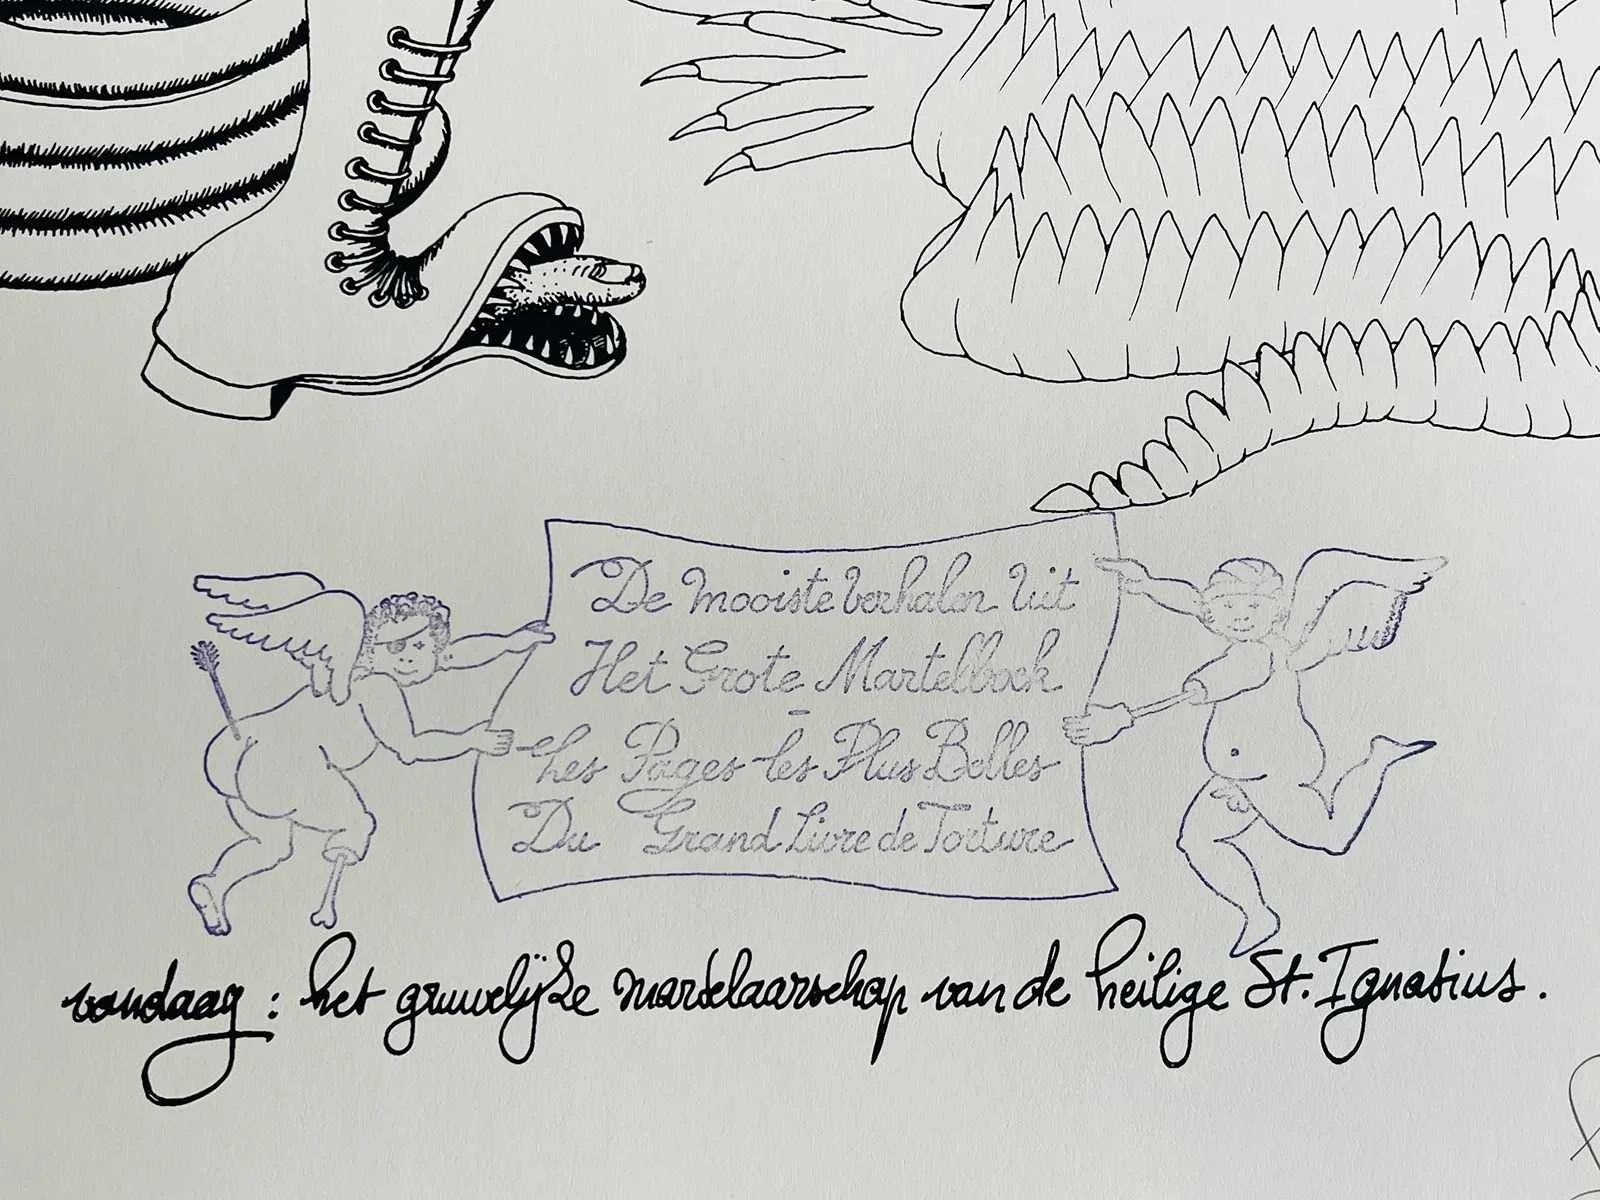 De Mooiste Verhalen Uit
Het Grote Martelboek
-
Les Pages les Plus Belles
Du Grand Livre de Torture
vandaag : het gruwelijke martelaarschap van de heilige St. Ignatius.